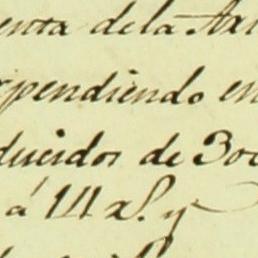 enta de la Ari
xpendiendo en
ducidos de 300
á 111 xs. y